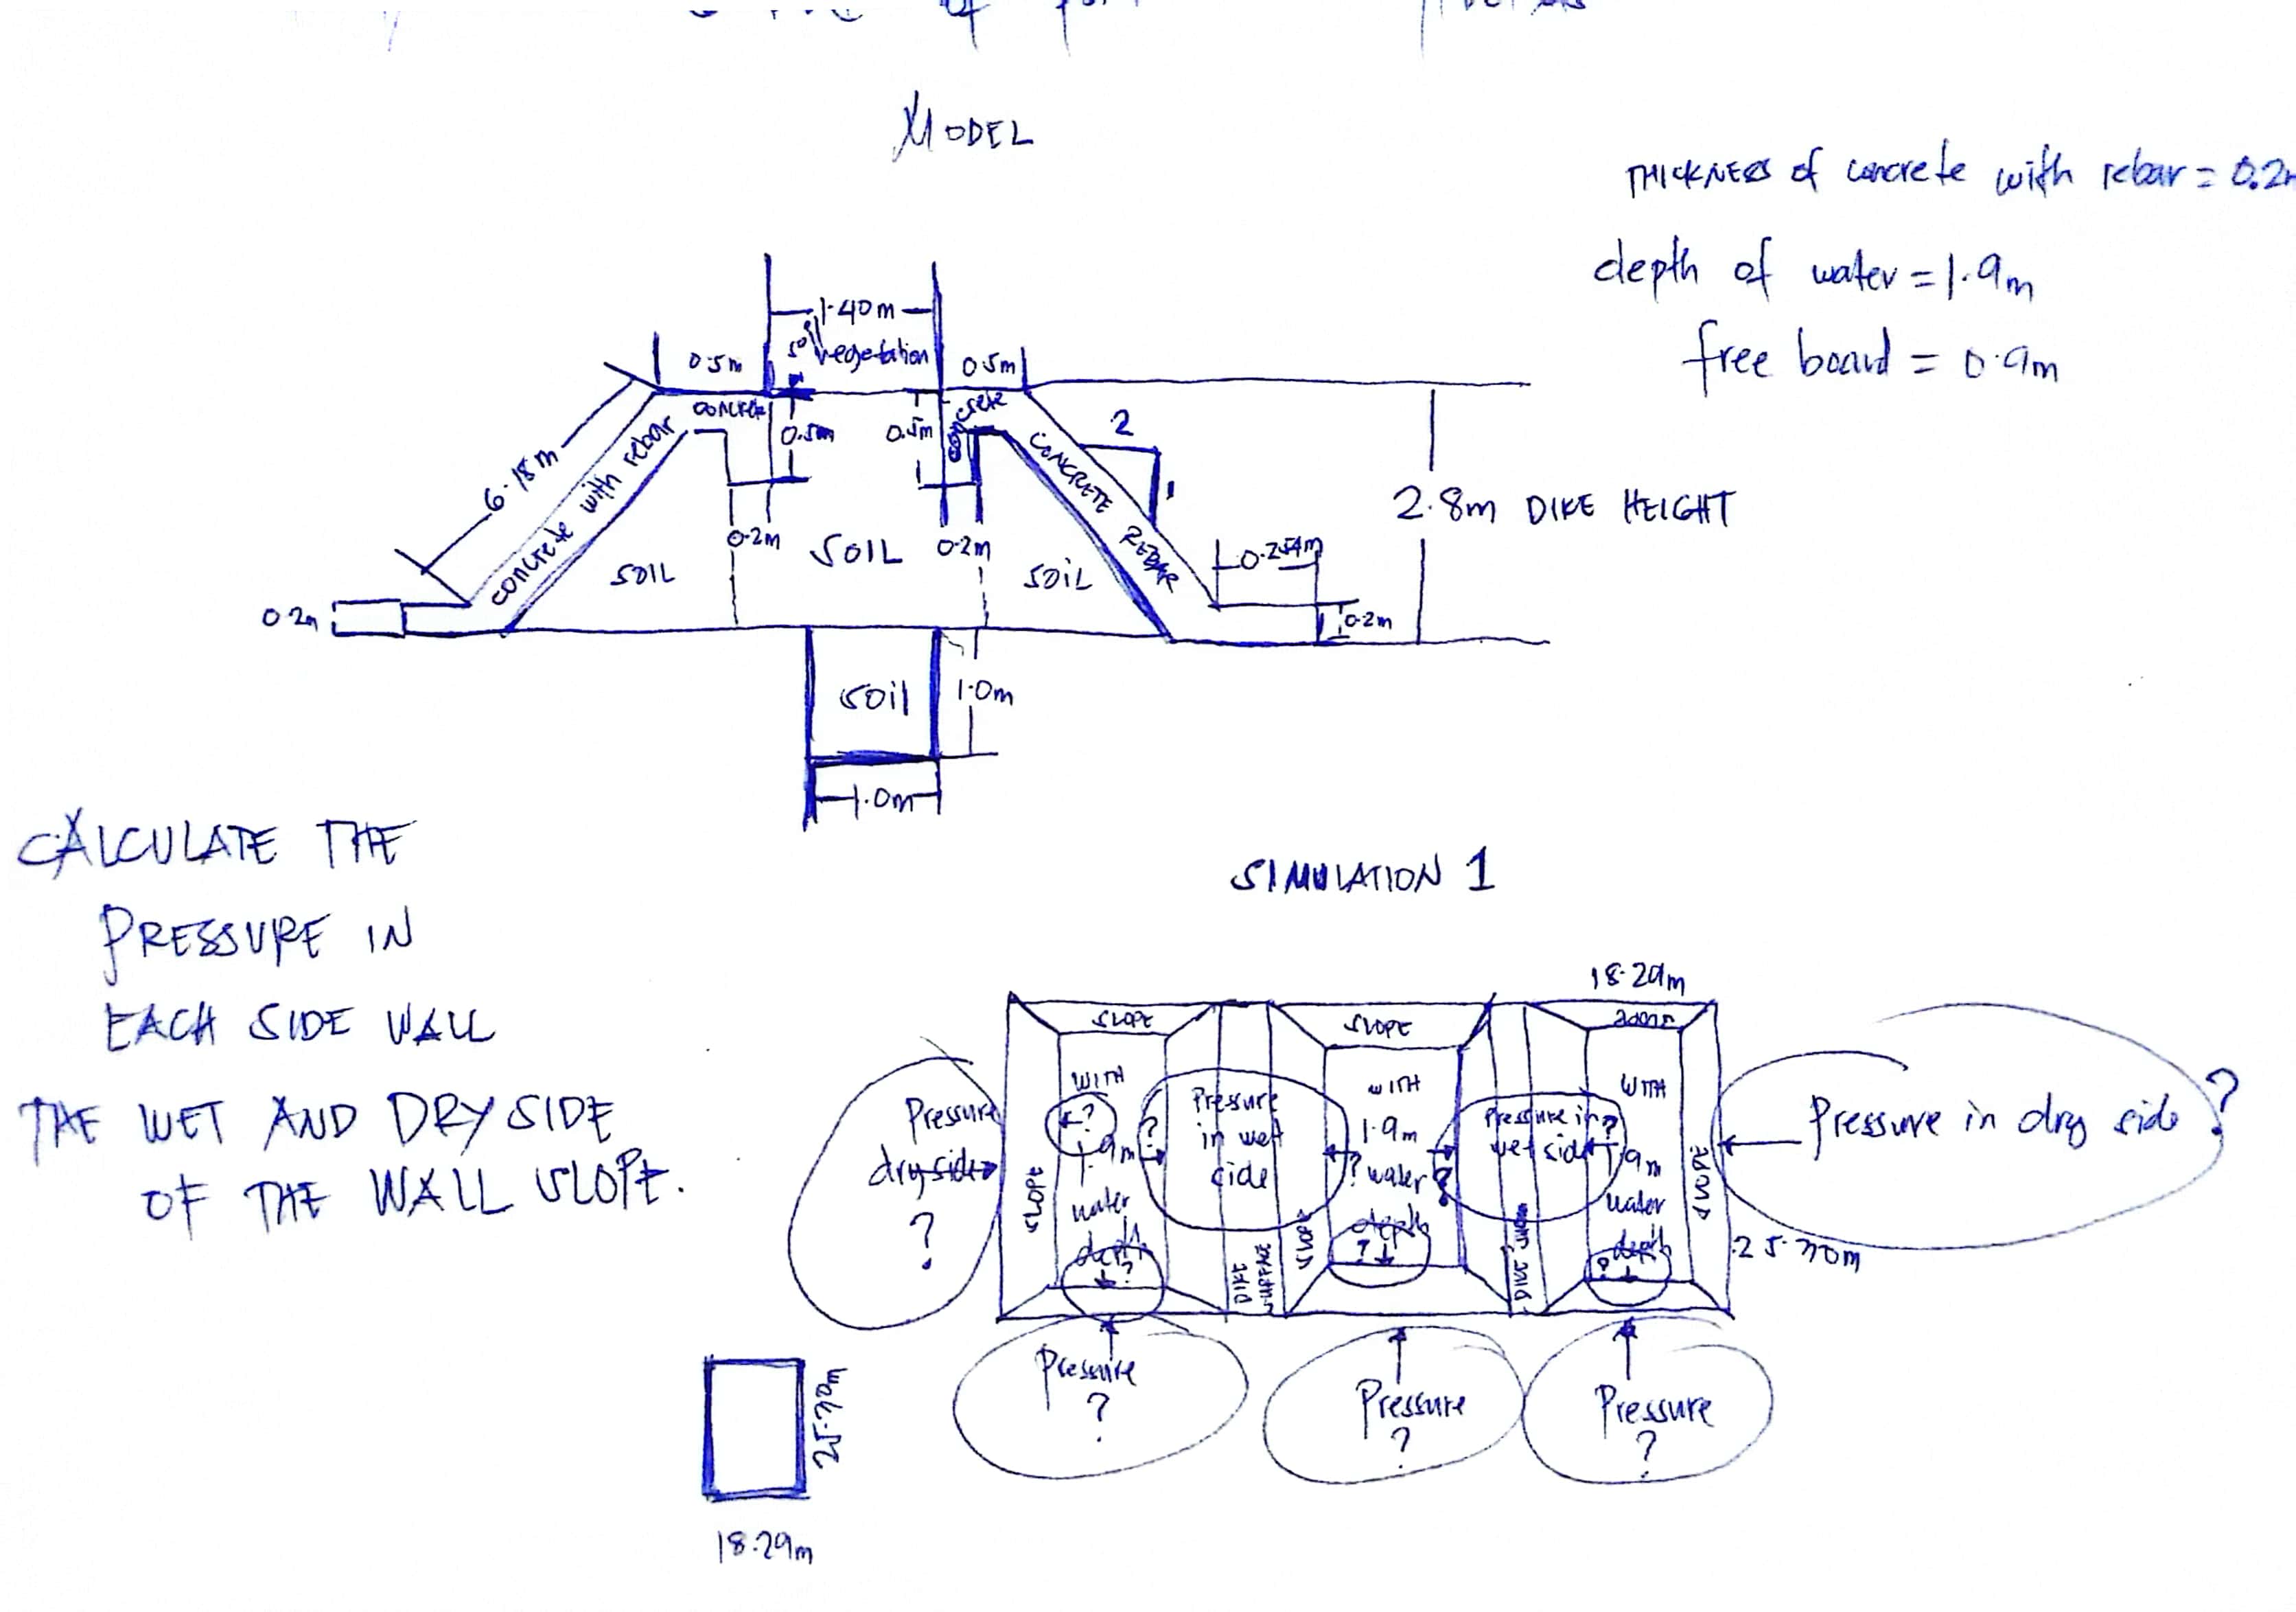 of
MODEL
THICKNESS of concrete with rebar = 0.2
depth of water = 1.9m
free board = 0.9m
1.40m
vegetation
0.5m
0.5m
CONCRETE
0.5m
0.5m
2
1
6.18m
concrete with rebar
CONCRETE REBAR
2.8m DIKE HEIGHT
0.2m
SOIL
0.2m
SOIL
0.2m
SOIL
0.254m
0.2m
SOIL
1.0m
1.0m
CALCULATE THE
PRESSURE IN
EACH SIDE WALL
THE WET AND DRY SIDE
OF THE WALL SLOPE.
SIMULATION 1
18.29m
SLOPE
SLOPE
WITH
?
1.9m
water
depth
?
SLOPE
Pressure
dry side
?
?
Pressure
in wet
side
DIKE
SURFACE
SLOPE
WITH
1.9m
? water
depth
?
?
Pressure in
wet side
?
DIKE
WITH
1.9m
water
depth
?
SLOPE
Pressure in dry side ?
25.30m
Pressure
?
Pressure
?
Pressure
?
25.30m
18.29m